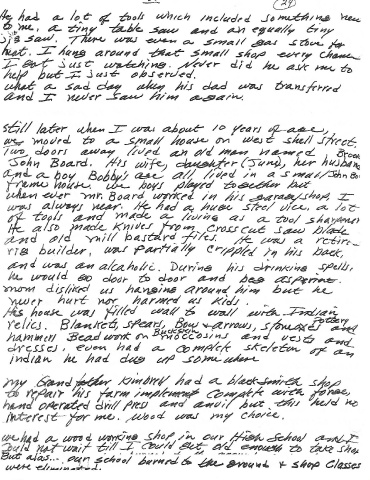 (29)
He had a lot of tools which included something new
to me, a tiny table saw and an equally tiny
jig saw. There was even a small gas stove for
heat. I hung around that small shop every chance
I got just watching. Never did he ask me to
help but I just observed.
what a sad day when his dad was transferred
and I never saw him again.
Still later when I was about 10 years of age,
we moved to a small house on west Shell street.
Two doors away lived an old man named
John Board. His wife, daughter (June), her husband
and a boy Bobby's age all lived in a small
frame house. We boys played together but
when ever Mr. Board worked in his garage/shop, I
was always near. He had a huge steel vice, a lot
of tools and made a living as a tool sharpener
He also made knives from crosscut saw blade
and old mill bastard files. He was a retire-
rig builder, was partially crippled in his back,
and was an alcoholic. During his drinking spells,
he would go door to door and beg aspirin.
mom disliked us hanging around him but he
never hurt nor harmed us kids.
His house was filled wall to wall with Indian
relics. Blankets, spears, Bow & arrows, pottery and
hammers Beadwork on Buckskin moccosins and vests and
dresses. even had a complete skeleton of an
indian he had dug up some where
my Grand father Kimbrel had a blacksmith shop
to repair his farm implements complete with forge,
hand operated drill press and anvil but this held no
interest for me. wood was my choice.
we had a wood working shop in our High School and I
could not wait till I could get old enough to take shop
But alas... our school burned to the ground & shop classes
were eliminated.